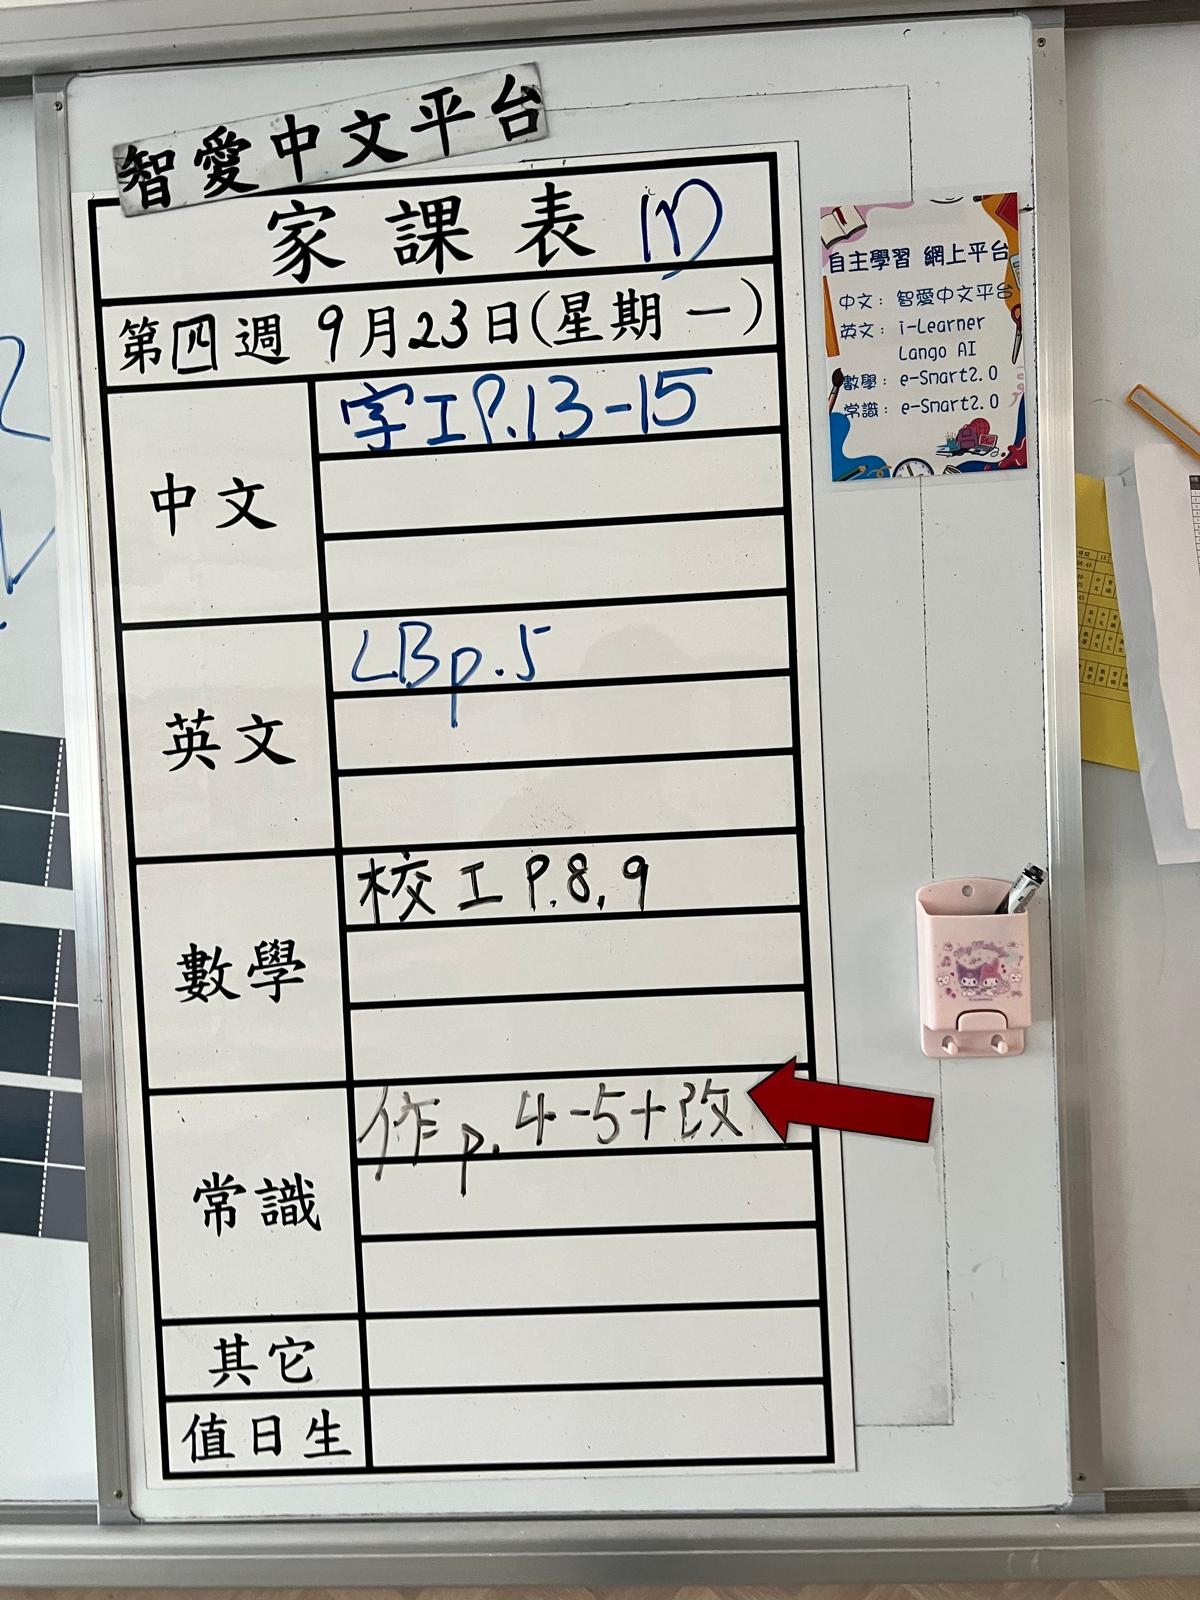 智愛中文平台
家課表 1D
第四週 9月23日(星期一)
中文
字工P.13-15
英文
LB p.5
數學
校工 P.8,9
常識
作 p.4-5+改
其它
值日生
自主學習 網上平台
中文：智愛中文平台
英文：i-Learner
Lango AI
數學：e-Smart2.0
常識：e-Smart2.0